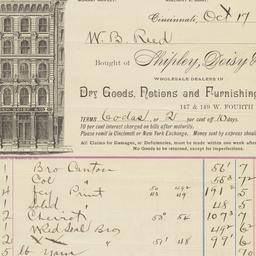 Cincinnati, Oct 17
W. B. Reed
Bought of Shipley, Doisy &
WHOLESALE DEALERS IN
Dry Goods, Notions and Furnishing
147 & 149 W. FOURTH
TERMS 60 das, or 2 per cent off 10 days.
10 per cent interest charged on bills after maturity.
Please remit in Cincinnati or New York Exchange. Money sent by express should
All Claims for Damages, or Deficiencies, must be made within one week after
No Goods to be returned, except for imperfections.
1 Bro Canton 56¹ 7
1 Col " 55 7
4 Fcy Print 50 49² 191² 5
1 Solid 48 5
2 Cheviots 53² 54 107³ 7
1 Red Seal Bro 49² 6²
2 51¹ 48 99¹ 6
5 lb Yarn